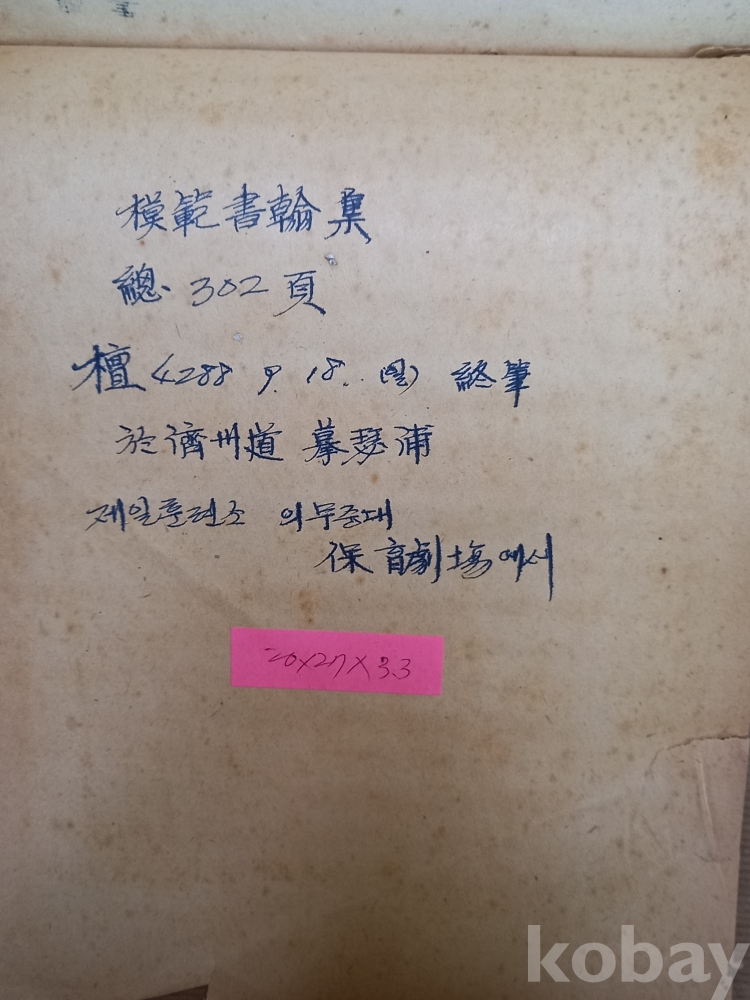 模範書翰集
總. 302 頁
檀 4288 9. 18. (日) 終筆
於 濟州道 摹瑟浦
제일훈련소 의무중대
保育劇場에서
20×27×3.3
kobay